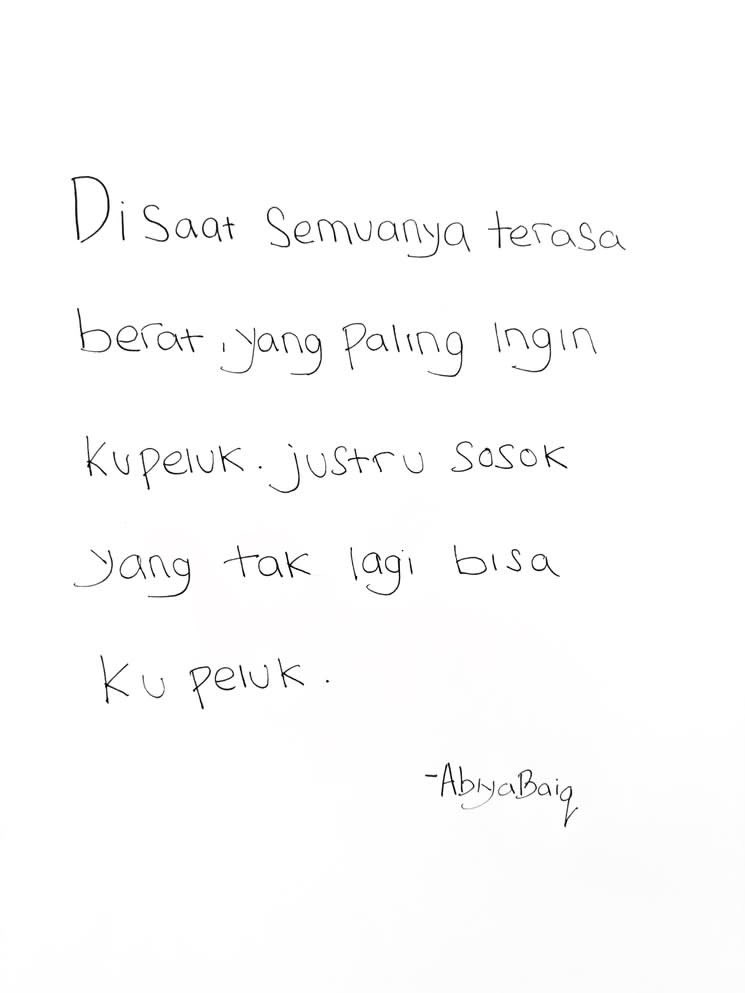 Di saat semuanya terasa
berat, yang paling Ingin
kupeluk. justru sosok
yang tak lagi bisa
Ku peluk.
-AbiyaBaiq